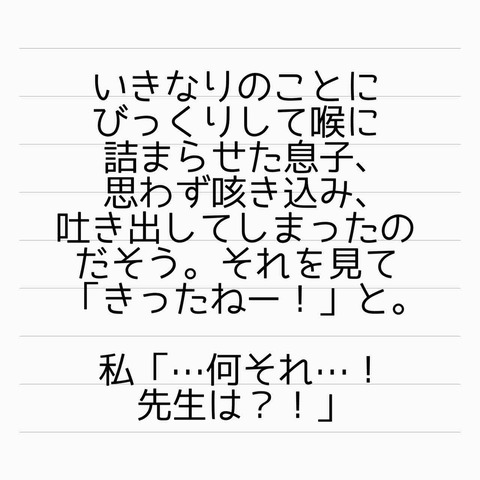 いきなりのことに
びっくりして喉に
詰まらせた息子、
思わず咳き込み、
吐き出してしまったの
だそう。それを見て
「きったねー！」と。
私「…何それ…！
先生は？！」